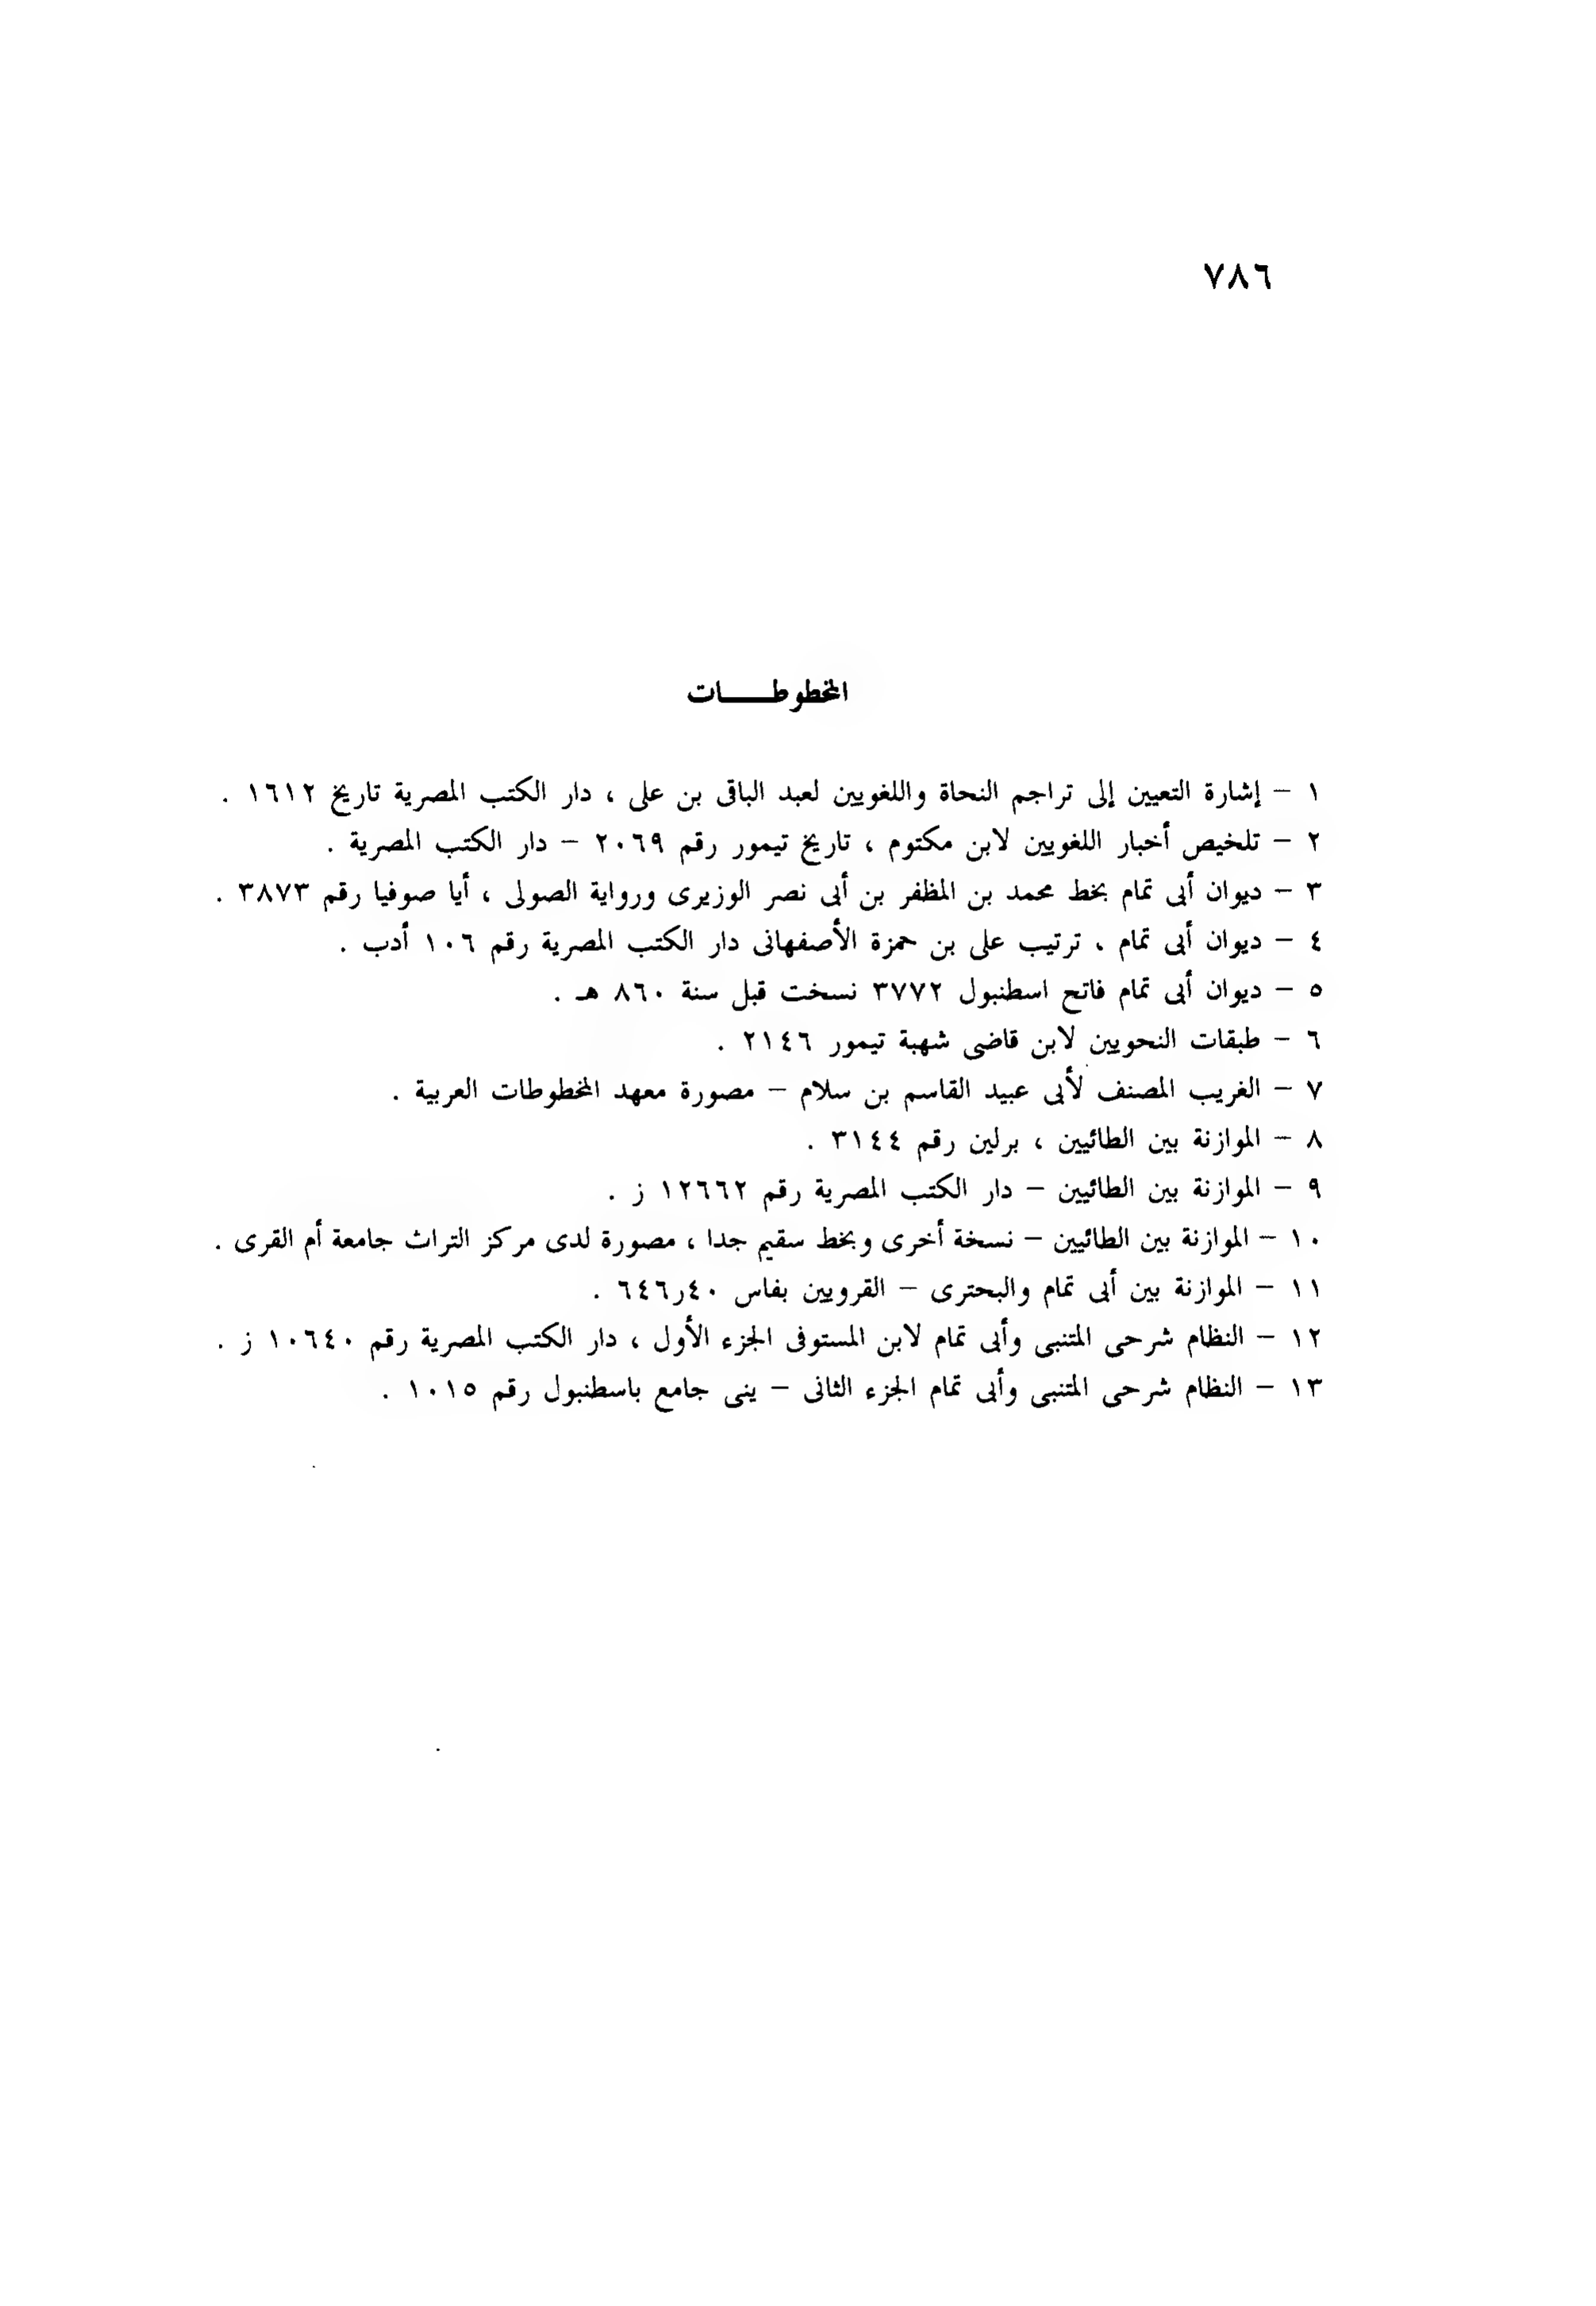 ٧٨٦
المخطوطـــات
١ – إشارة التعيين إلى تراجم النحاة واللغويين لعبد الباقى بن على ، دار الكتب المصرية تاريخ ١٦١٢ .
٢ – تلخيص أخبار اللغويين لابن مكتوم ، تاريخ تيمور رقم ٢٠٦٩ – دار الكتب المصرية .
٣ – ديوان أبى تمام بخط محمد بن المظفر بن أبى نصر الوزيرى ورواية الصولى ، أيا صوفيا رقم ٣٨٧٣ .
٤ – ديوان أبى تمام ، ترتيب على بن حمزة الأصفهانى دار الكتب المصرية رقم ١٠٦ أدب .
٥ – ديوان أبى تمام فاتح اسطنبول ٣٧٧٢ نسخت قبل سنة ٨٦٠ هـ .
٦ – طبقات النحويين لابن قاضى شهبة تيمور ٢١٤٦ .
٧ – الغريب المصنف لأبى عبيد القاسم بن سلام – مصورة معهد المخطوطات العربية .
٨ – الموازنة بين الطائيين ، برلين رقم ٣١٤٤ .
٩ – الموازنة بين الطائيين – دار الكتب المصرية رقم ١٢٦٦٢ ز .
١٠ – الموازنة بين الطائيين – نسخة أخرى وبخط سقيم جدا ، مصورة لدى مركز التراث جامعة أم القرى .
١١ – الموازنة بين أبى تمام والبحترى – القرويين بفاس ٤٠ر٦٤٦ .
١٢ – النظام شرحى المتنبى وأبى تمام لابن المستوفى الجزء الأول ، دار الكتب المصرية رقم ١٠٦٤٠ ز .
١٣ – النظام شرحى المتنبى وأبى تمام الجزء الثانى – ينى جامع باسطنبول رقم ١٠١٥ .